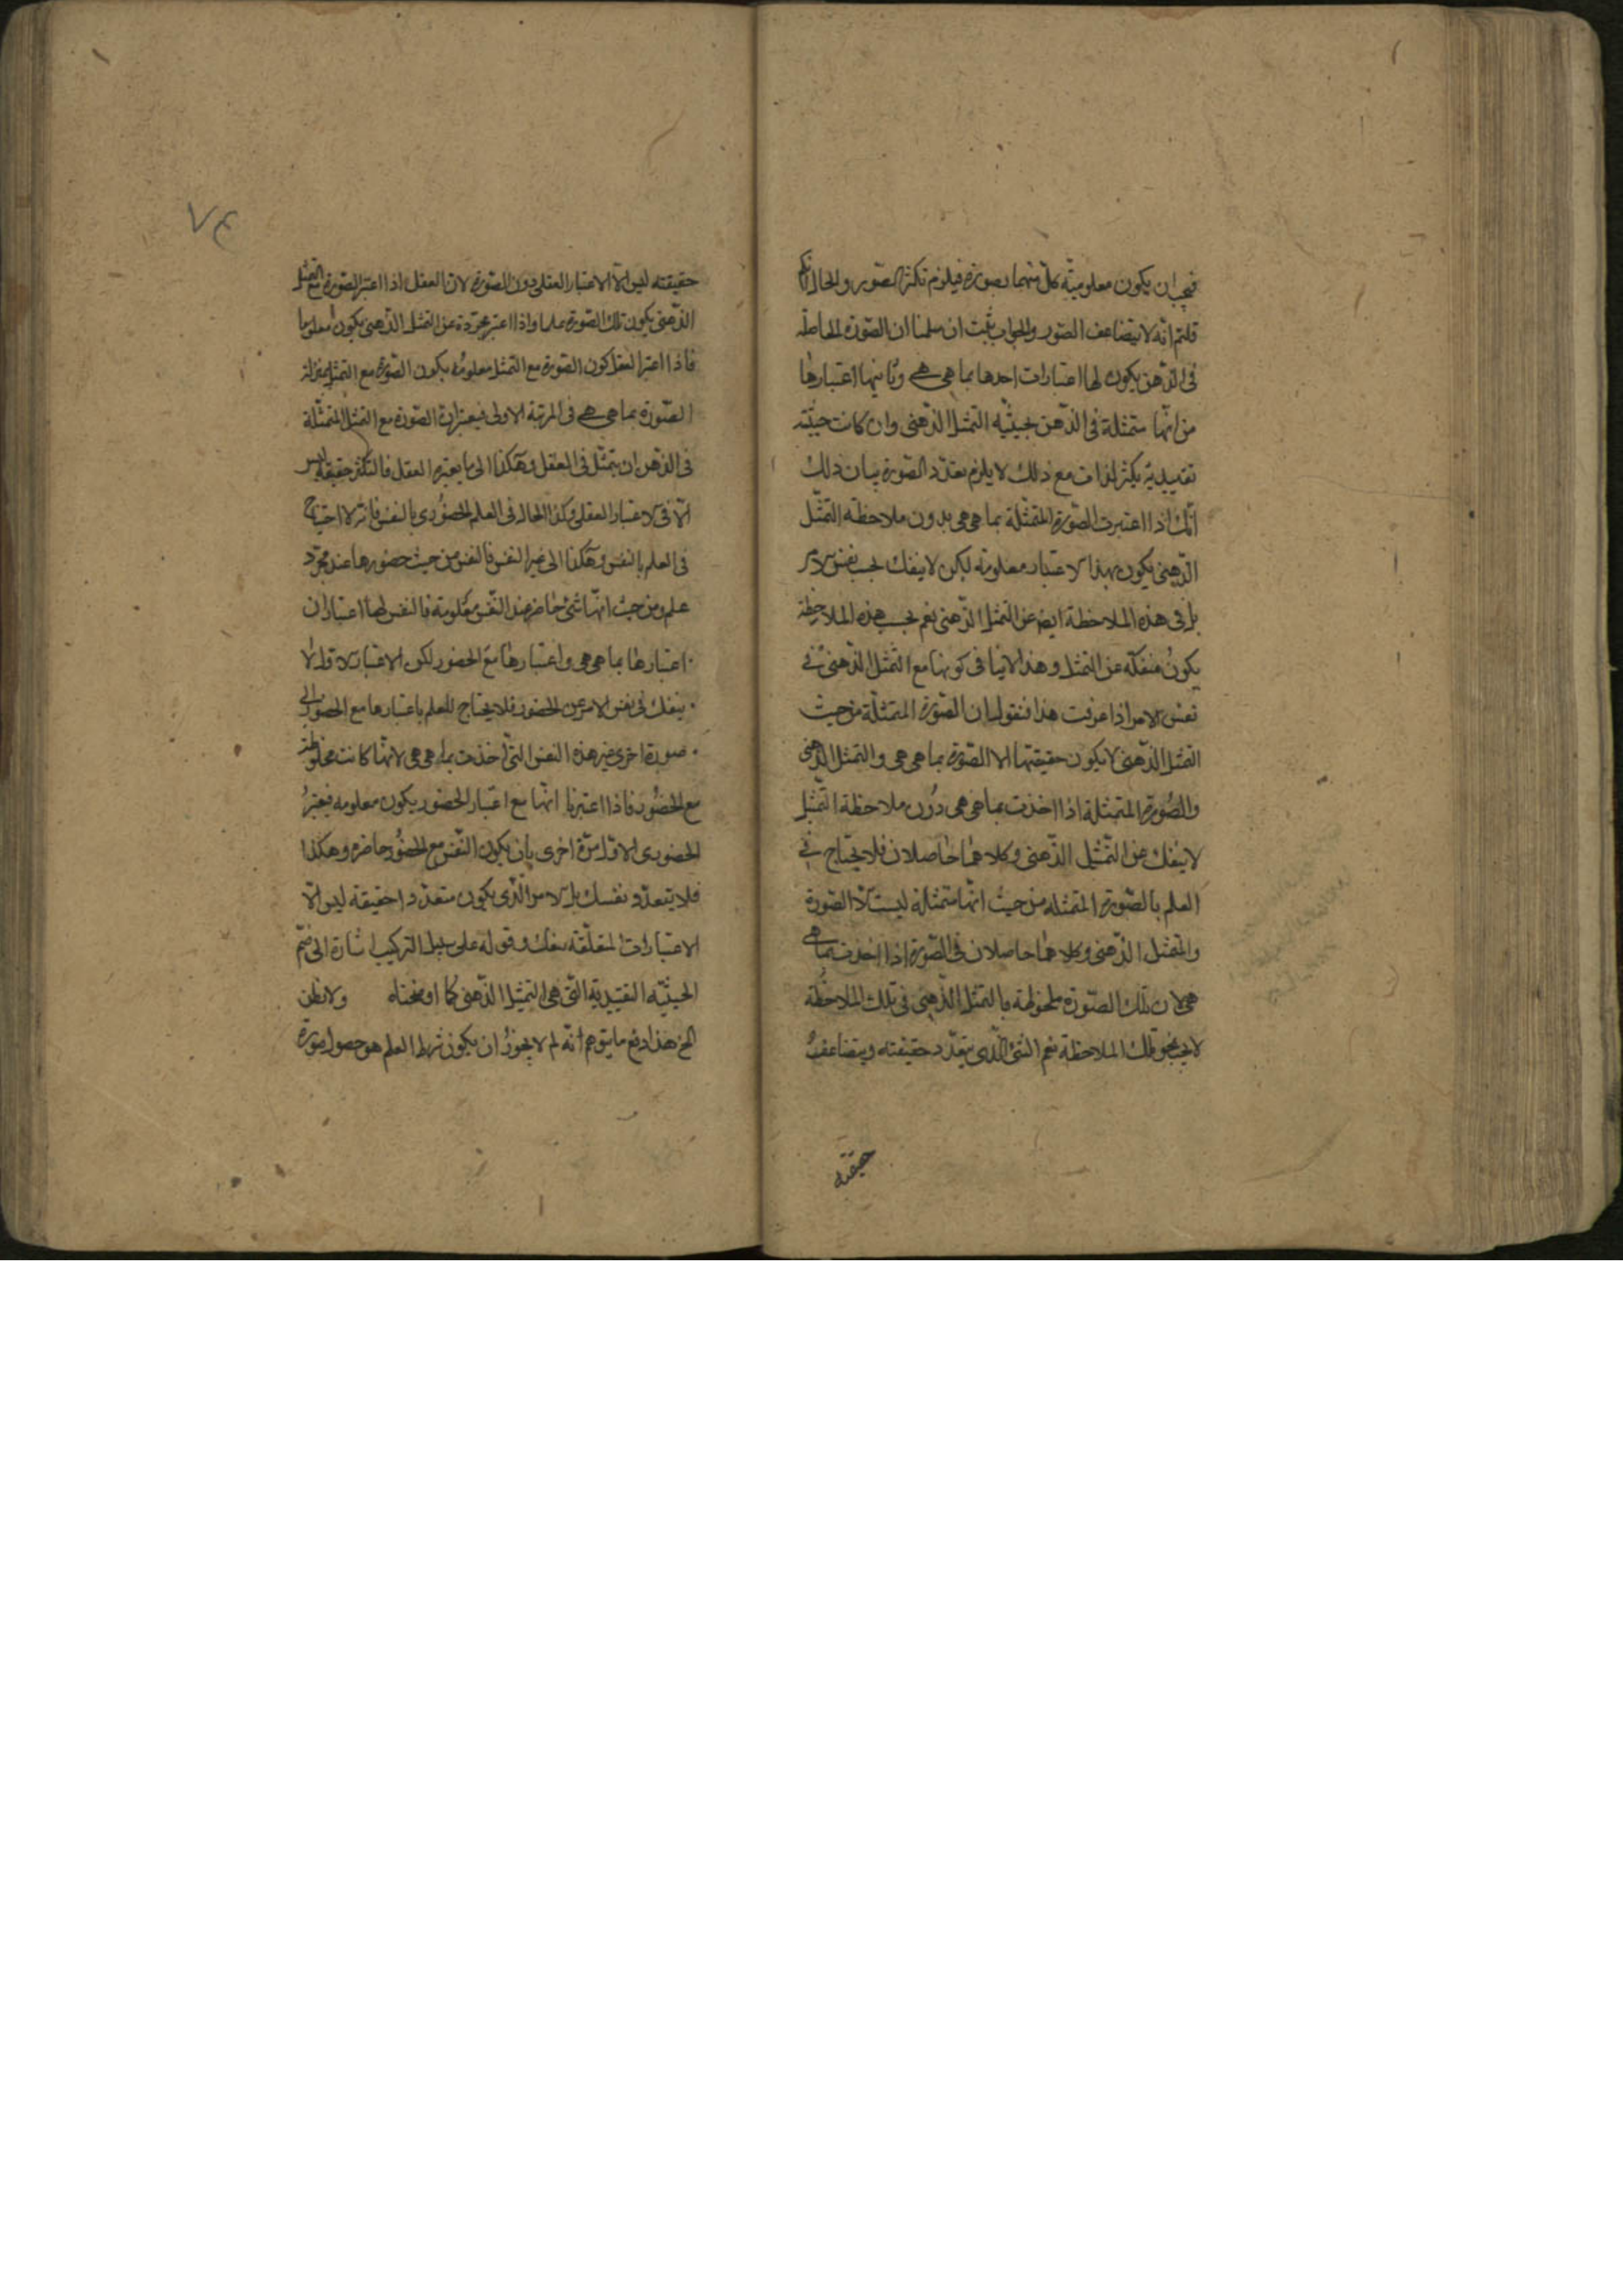 فيجب ان يكون معلوميّة كلّ منهما بصورة فيلزم تكثر الصّور والحال انكم
قلتم انّه لا يتضاعف الصّور والجواب يثبت ان سلمنا ان الصّورة الحاصلة
فى الذّهن يكون لها اعتبارات احدها بما هى هى وثانيها اعتبارها
من انّها متمثلة فى الذّهن بحيثيّة التمثل الذّهنى وان كانت حيثيّة
تقييدية يكثر الذات مع ذلك لا يلزم تعدّد الصّورة بيان ذلك
انّك اذا اعتبرت الصّورة المتمثّلة بما هى هى بدون ملاحظة التمثّل
الذّهنى يكون بهذا الاعتبار معلومة لكن لا ينفك بحسب نفس الامر
بل فى هذه الملاحظة ايضا عن التمثل الذّهنى نعم بحسب هذه الملاحظة
يكون منفكّة عن التمثل وهذا لا ينافى كونها مع التمثل الذّهنى فى
نفس الامر اذا عرفت هذا فنقول ان الصّورة المتمثّلة من حيث
التمثل الذّهنى لا يكون حقيقتها الا الصّورة بما هى هى والتمثل الذهنى
والصّورة المتمثلة اذا اخذت بما هى هى دون ملاحظة التّمثيل
لا ينفك عن التّمثيل الذّهنى وكلاهما حاصلان فلا يحتاج فى
العلم بالصّورة المتمثله من حيث انّها متمثلة ليست الّا الصّورة
والتمثل الذّهنى وكلاهما حاصلان فى الصّورة اذا اخذت بما هى
هى لان تلك الصّورة ملحوظة بالتمثل الذّهنى فى تلك الملاحظة
لا بحسب تلك الملاحظة نعم الشئ الّذى يتعدّد حقيقته ويتضاعف
حقيقته
٧٤
حقيقته ليس الّا الاعتبار العقلى دون الصّورة لان العقل اذا اعتبر الصّورة مع التمثل
الذّهنى يكون تلك الصّورة علما واذا اعتبر مجرّدة عن التمثل الذّهنى يكون معلوما
فاذا اعتبر العقل كون الصّورة مع التمثل معلومة يكون الصّورة مع التمثل بمنزلة
الصّورة بما هى هى فى المرتبة الاولى فيعتبر ان الصّورة مع التمثل المتمثّلة
فى الذهن ان يتمثّل فى العقل وهكذا الى ما يعتبره العقل فالتكثر حقيقة ليس
الّا فى الاعتبار العقلى وكذا الحال فى العلم الحضورى بالنفس فانه لا احتياج
فى العلم بالنفس وهكذا الى غير النفس فالنفس من حيث حضورها عند مجرّد
علم ومن حيث انّها شئ حاضر عند النّفس معلومة فالنفس لها اعتباران
اعتبارها بما هى هى واعتبارها مع الحضور لكن الاعتبار الاول لا
ينفك فى نفس الامر عن الحضور فلا يحتاج للعلم باعتبارها مع الحضور الى
صورة اخرى غير هذه النفس التى اخذت بما هى هى لانّها كانت مخلوطة
مع الحضور فاذا اعتبرنا انّها مع اعتبار الحضور يكون معلومه فيعتبر
الحضورى الاوّل مرّة اخرى بان يكون النّفس مع الحضور حاضرة وهكذا
فلا يتعدّد نفسك بل الامر الّذى يكون متعدّدا حقيقة ليس الّا
الاعتبارات المتعلّقة بنفسك وقوله على سبيل التركيب اشارة الى ضمّ
الحيثيّة التقييدية التّى هى التمثيل الذّهنى كما اوضحناه ولا تظن
الخ هذا دفع ما يتوهم انّه لم لا يجوز ان يكون شرط العلم هو حصول صورة